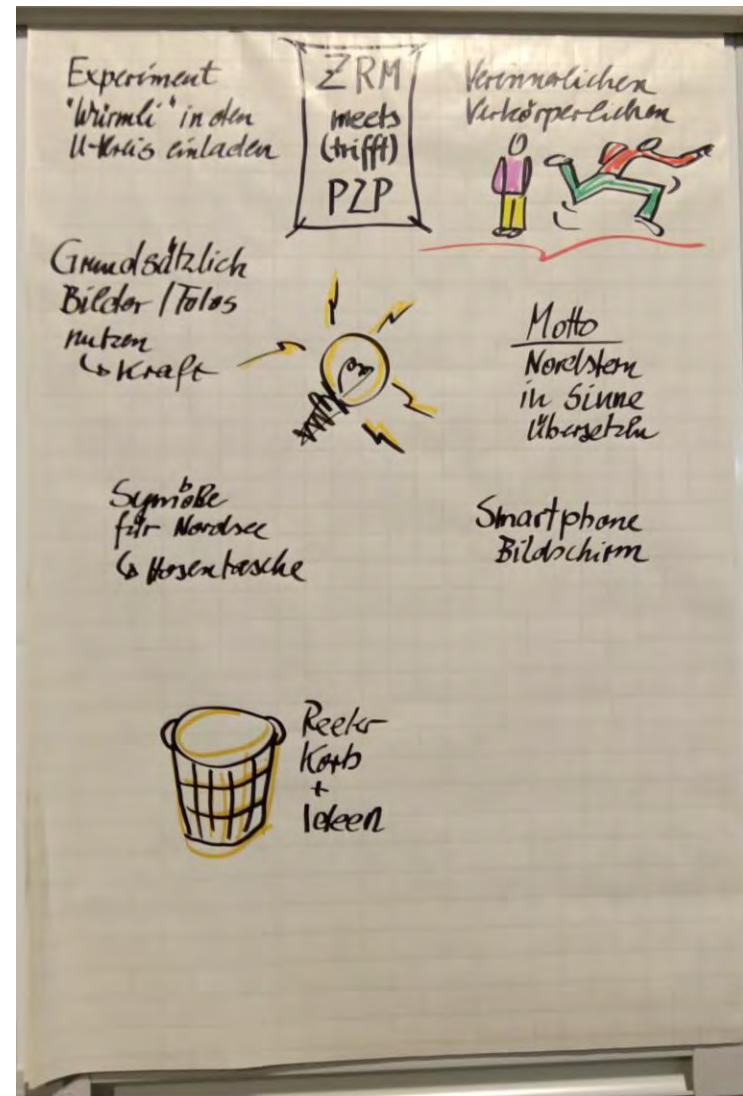 Experiment
"Würmli" in den
U-Kreis einladen
ZRM
meets
(trifft)
PZP
Verinnerlichen
Verkörperlichen
Grundsätzlich
Bilder / Fotos
nutzen
↳ Kraft
Motto
Nordstern
in Sinne
übersetzen
für Nordsee
↳ Hosentasche
Smartphone
Bildschirm
Korb
+
Ideen